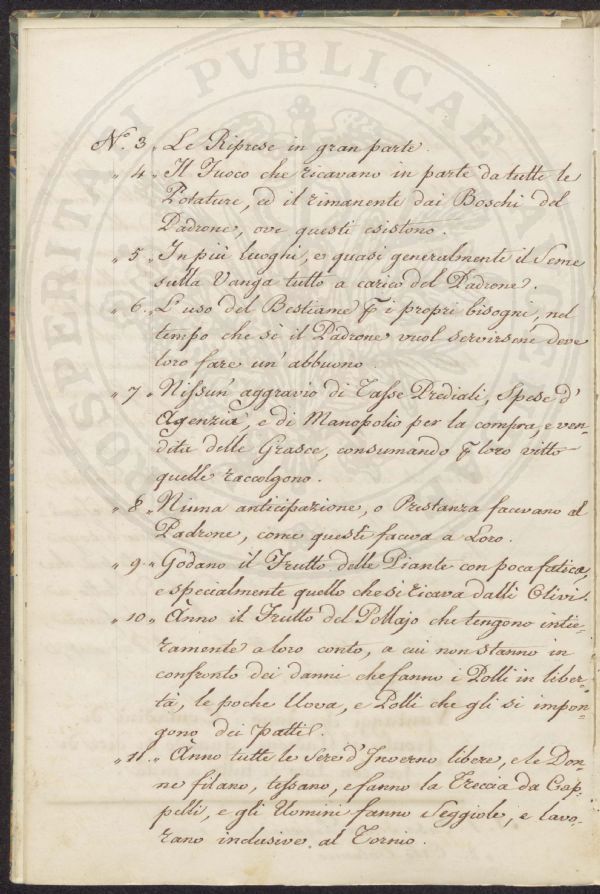 N.o 3 „ Le Riprese in gran parte.
„ 4 „ Il Fuoco che ricavano in parte da tutte le
Potature, ed il rimanente dai Boschi del
Padrone, ove questi esistono.
„ 5 „ In più luoghi, e quasi generalmente il Seme
sulla Vanga tutto a carico del Padrone.
„ 6 „ L'uso del Bestiame ꝑ i propri bisogni, nel
tempo che se il Padrone vuol servirsene deve
loro fare un' abbuono.
„ 7 „ Nissun' aggravio di Tasse Prediali, Spese d'
Agenzia, e di Manopolio per la compra, e ven-
dita delle Grasce, consumando ꝑ loro vitto
quelle raccolgono.
„ 8 „ Niuna anticipazione, o Prestanza facevano al
Padrone, come questi faceva a Loro.
„ 9 „ Godano il Frutto delle Piante con poca fatica,
e specialmente quello che si ricava dalli Olivi.
„ 10 „ Ànno il Frutto del Pollajo che tengono intie-
ramente a loro conto, a cui non stanno in
confronto dei danni che fanno i Polli in liber-
tà, le poche Uova, e Polli che gli si impon-
gono dei patti.
„ 11 „ Ànno tutte le Sere d'Inverno libere, e le Don-
ne filano, tessano, e fanno la Treccia da Cap-
pelli, e gli Uomini fanno Seggiole, e lavo-
rano inclusive al Tornio.
PROSPERITATI PVBLICAE